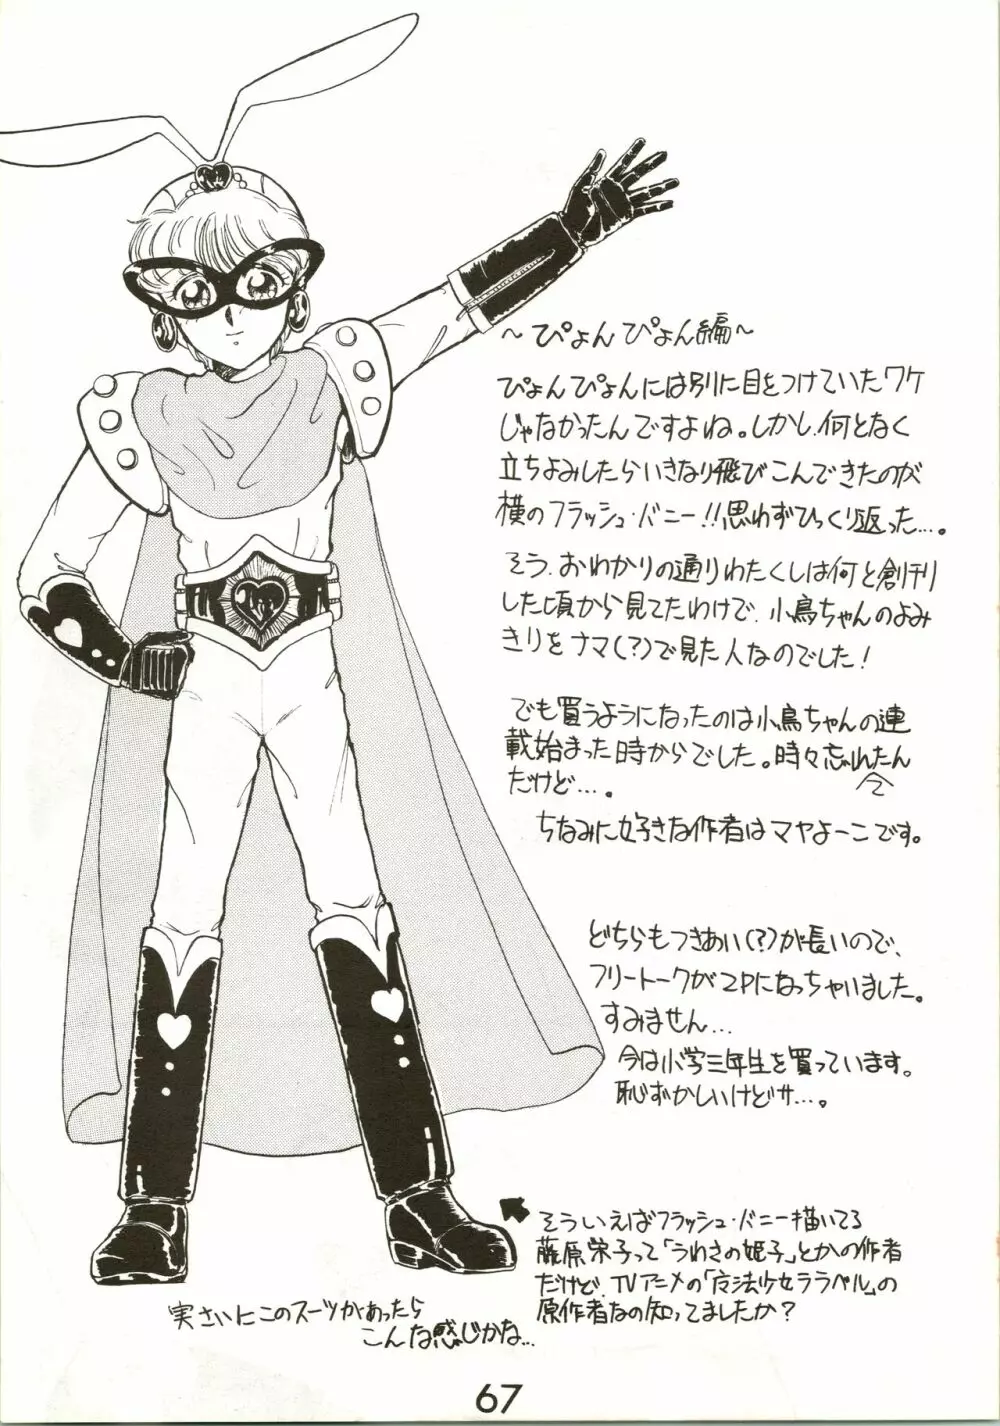 ～ぴょんぴょん編～
ぴょんぴょんには別に目をつけていたワケ
じゃなかったんですよね。しかし、何となく
立ちよみしたらいきなり飛びこんできたのが
横のフラッシュ・バニー!!思わずひっくり返った…。
そう、おわかりの通りわたくしは何と創刊
した頃から見てたわけで、小鳥ちゃんのよみ
きりをナマ(?)で見た人なのでした!
でも買うようになったのは小鳥ちゃんの連
載始まった時からでした。時々忘れたん
だけど…。
ちなみに好きな作者はマヤよーこです。
どちらもつきあい(?)が長いので、
フリートークが2Pになっちゃいました。
すみません…
今は小学三年生を買っています。
恥ずかしいけどサ…。
そういえばフラッシュ・バニー描いてる
藤原栄子って「うわさの姫子」とかの作者
だけど、TVアニメの「魔法少女ララベル」の
原作者なの知ってましたか?
実さいにこのスーツがあったら
こんな感じかな…
67